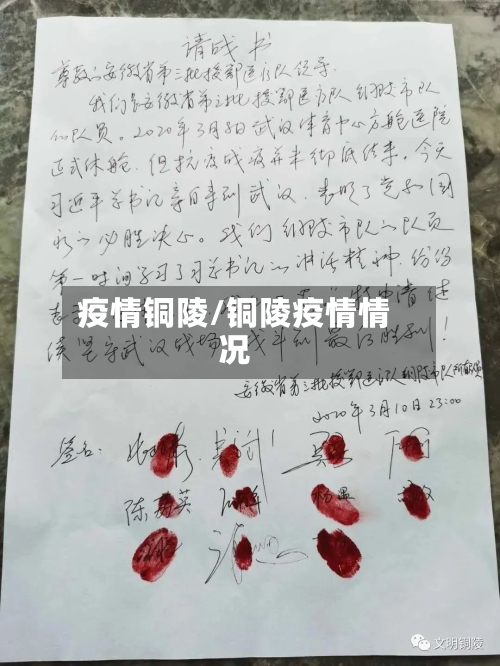 请战书
尊敬的安徽省第三批援鄂医疗队领导:
我们是安徽省第三批援鄂医疗队铜陵市队
的队员。2020年3月8日武汉体育中心方舱医院
正式休舱,但抗疫战疫并未彻底结束。今天
习近平总书记亲自来到武汉,表明了党和国
家的必胜决心。我们铜陵市队的队员
第一时间学习了习总书记的讲话精神,纷纷
疫情铜陵/铜陵疫情情
况
申请继
续坚守武汉战场 战斗到最后胜利!
安徽省第三批援鄂医疗队铜陵市队
2020年3月10日 23:00
签名:
陈 英
文明铜陵